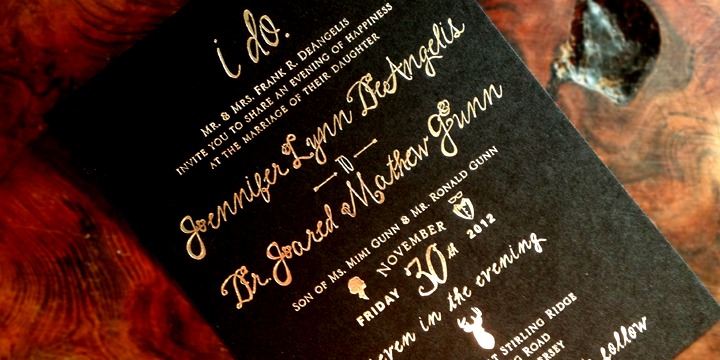 i do.
MR. & MRS. FRANK R. DEANGELIS
INVITE YOU TO SHARE AN EVENING OF HAPPINESS
AT THE MARRIAGE OF THEIR DAUGHTER
Jennifer Lynn DeAngelis
TO
Dr. Jared Mathew Gunn
SON OF MS. MIMI GUNN & MR. RONALD GUNN
NOVEMBER
FRIDAY 30th 2012
even in the evening
STIRLING RIDGE
ROAD
follow